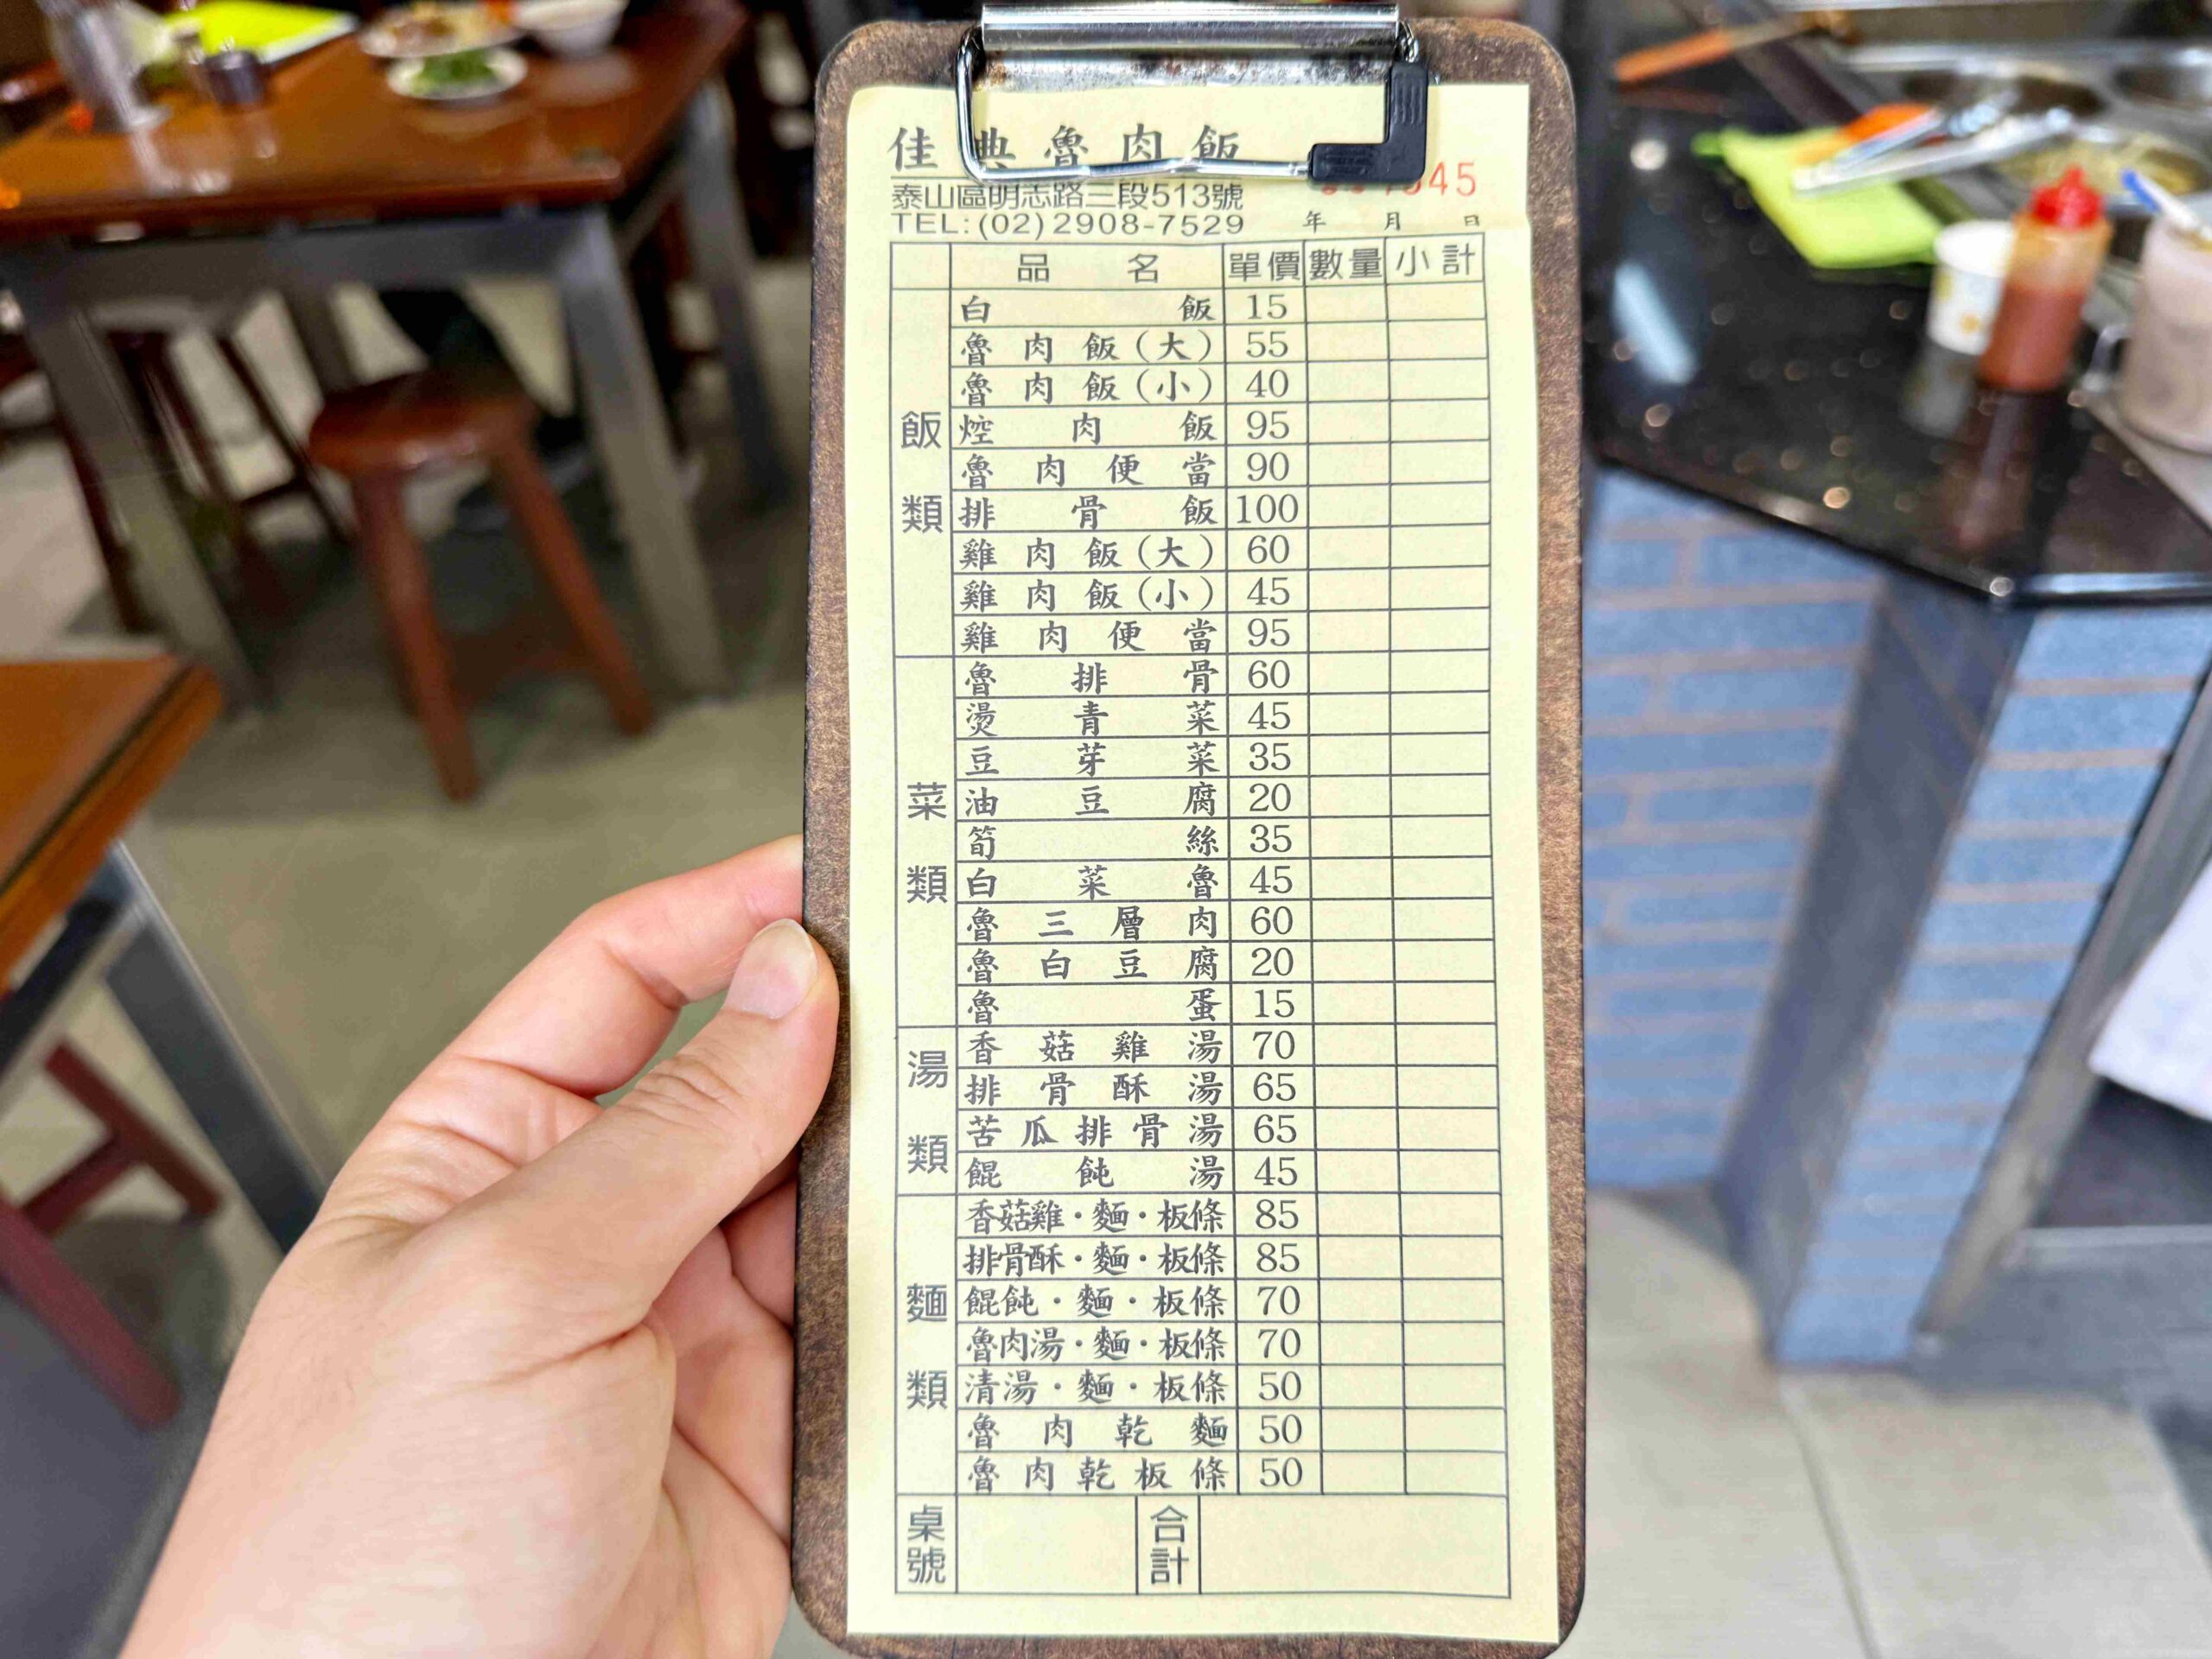 佳典魯肉飯
45
泰山區明志路三段513號
TEL:(02)2908-7529 年 月 日
品名 單價 數量 小計
飯類
白飯 15
魯肉飯(大) 55
魯肉飯(小) 40
焢肉飯 95
魯肉便當 90
排骨飯 100
雞肉飯(大) 60
雞肉飯(小) 45
雞肉便當 95
菜類
魯排骨 60
燙青菜 45
豆芽菜 35
油豆腐 20
筍絲 35
白菜魯 45
魯三層肉 60
魯白豆腐 20
魯蛋 15
湯類
香菇雞湯 70
排骨酥湯 65
苦瓜排骨湯 65
餛飩湯 45
麵類
香菇雞·麵·板條 85
排骨酥·麵·板條 85
餛飩·麵·板條 70
魯肉湯·麵·板條 70
清湯·麵·板條 50
魯肉乾麵 50
魯肉乾板條 50
桌號 合計